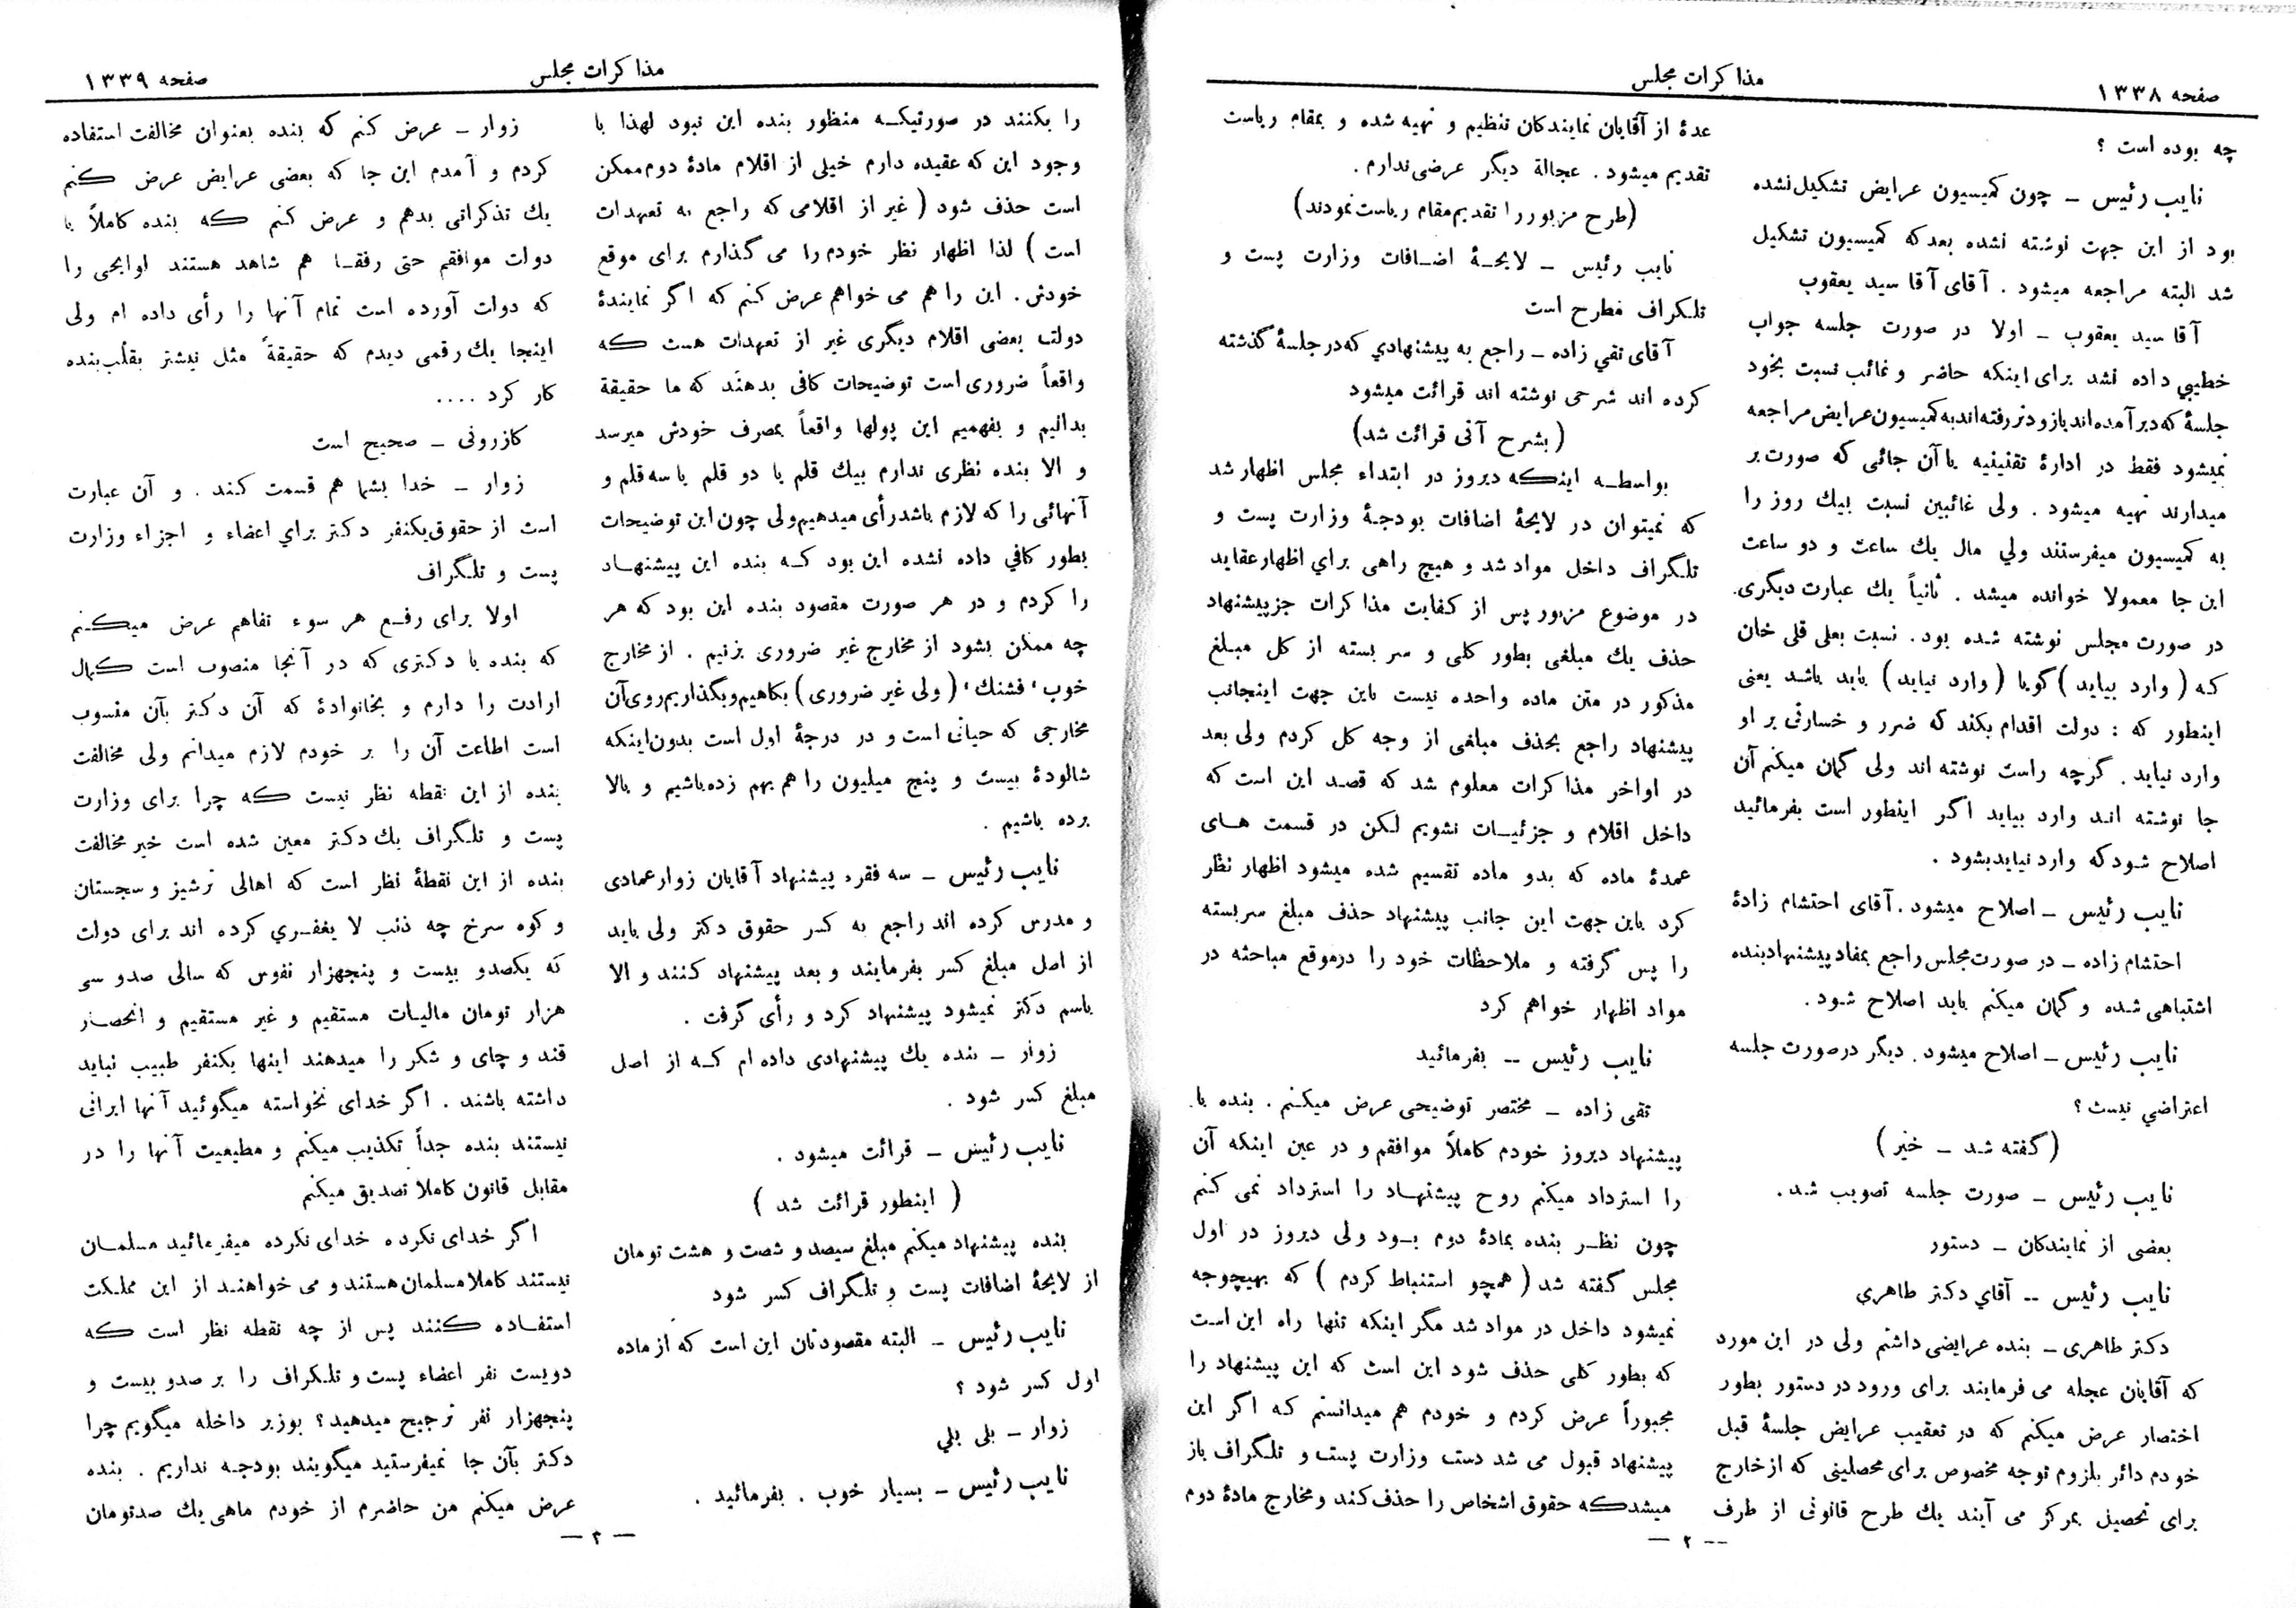 صفحه ۱۳۳۸
مذاکرات مجلس
چه بوده است ؟
نایب رئیس ــ چون کمیسیون عرایض تشکیل نشده
بود از این جهت نوشته نشده بعد که کمیسیون تشکیل
شد البته مراجعه میشود . آقای آقا سید یعقوب
آقا سید یعقوب ــ اولا در صورت جلسه جواب
خطیبی داده نشد برای اینکه حاضر و غائب نسبت بخود
جلسهٔ که دیر آمده اند یا زودتر رفته اند به کمیسیون عرایض مراجعه
نمیشود فقط در ادارهٔ تقنینیه یا آن جائی که صورت بر
میدارند تهیه میشود . ولی غائبین نسبت بیك روز را
به کمیسیون میفرستند ولی مال یك ساعت و دو ساعت
این جا معمولا خوانده میشد . ثانیاً یك عبارت دیگری
در صورت مجلس نوشته شده بود . نسبت بعلی قلی خان
که ( وارد بیاید ) گویا ( وارد نیاید ) باید باشد یعنی
اینطور که : دولت اقدام بکند که ضرر و خسارتی بر او
وارد نیاید . گرچه راست نوشته اند ولی گمان میکنم آن
جا نوشته اند وارد بیاید اگر اینطور است بفرمائید
اصلاح شود که وارد نیاید بشود .
نایب رئیس ــ اصلاح میشود . آقای احتشام زادهٔ
احتشام زاده ــ در صورت مجلس راجع بمفاد پیشنهاد بنده
اشتباهی شده و گمان میکنم باید اصلاح شود .
نایب رئیس ــ اصلاح میشود . دیگر در صورت جلسه
اعتراضی نیست ؟
( گفته شد ــ خیر )
نایب رئیس ــ صورت جلسه تصویب شد .
بعضی از نمایندکان ــ دستور
نایب رئیس -- آقای دکتر طاهری
دکتر طاهری ــ بنده عرایضی داشتم ولی در این مورد
که آقایان عجله می فرمایند برای ورود در دستور بطور
اختصار عرض میکنم که در تعقیب عرایض جلسهٔ قبل
خودم دائر بلزوم توجه مخصوص برای محصلینی که از خارج
برای تحصیل بمرکز می آیند یك طرح قانونی از طرف
عدهٔ از آقایان نمایندکان تنظیم و تهیه شده و بمقام ریاست
تقدیم میشود . عجالة دیگر عرضی ندارم .
(طرح مزبور را تقدیم مقام ریاست نمودند)
نایب رئیس ــ لایحهٔ اضافات وزارت پست و
تلگراف مطرح است
آقای تقی زاده ــ راجع به پیشنهادی که در جلسهٔ گذشته
کرده اند شرحی نوشته اند قرائت میشود
( بشرح آتی قرائت شد)
بواسطه اینکه دیروز در ابتداء مجلس اظهار شد
که نمیتوان در لایحهٔ اضافات بودجهٔ وزارت پست و
تلگراف داخل مواد شد و هیچ راهی برای اظهار عقاید
در موضوع مزبور پس از کفایت مذاکرات جز پیشنهاد
حذف یك مبلغی بطور کلی و سر بسته از کل مبلغ
مذکور در متن ماده واحده نیست باین جهت اینجانب
پیشنهاد راجع بحذف مبلغی از وجه کل کردم ولی بعد
در اواخر مذاکرات معلوم شد که قصد این است که
داخل اقلام و جزئیات نشویم لکن در قسمت های
عمدهٔ ماده که بدو ماده تقسیم شده میشود اظهار نظر
کرد باین جهت این جانب پیشنهاد حذف مبلغ سربسته
را پس گرفته و ملاحظات خود را در موقع مباحثه در
مواد اظهار خواهم کرد
نایب رئیس -- بفرمائید
تقی زاده ــ مختصر توضیحی عرض میکنم . بنده با
پیشنهاد دیروز خودم کاملاً موافقم و در عین اینکه آن
را استرداد میکنم روح پیشنهاد را استرداد نمی کنم
چون نظر بنده بمادهٔ دوم بود ولی دیروز در اول
مجلس گفته شد ( همچو استنباط کردم ) که بهیچوجه
نمیشود داخل در مواد شد مگر اینکه تنها راه این است
که بطور کلی حذف شود این است که این پیشنهاد را
مجبوراً عرض کردم و خودم هم میدانستم که اگر این
پیشنهاد قبول می شد دست وزارت پست و تلگراف باز
میشد که حقوق اشخاص را حذف کند و مخارج مادهٔ دوم
-- ۲ —
مذاکرات مجلس
صفحه ۱۳۳۹
را بکنند در صورتیکه منظور بنده این نبود لهذا با
وجود این که عقیده دارم خیلی از اقلام مادهٔ دوم ممکن
است حذف شود ( غیر از اقلامی که راجع به تعهدات
است ) لذا اظهار نظر خودم را می گذارم برای موقع
خودش . این را هم می خواهم عرض کنم که اگر نمایندهٔ
دولت بعضی اقلام دیگری غیر از تعهدات هست که
واقعاً ضروری است توضیحات کافی بدهند که ما حقیقة
بدانیم و بفهمیم این پولها واقعاً بمصرف خودش میرسد
و الا بنده نظری ندارم بیك قلم یا دو قلم یا سه قلم و
آنهائی را که لازم باشد رأی میدهیم ولی چون این توضیحات
بطور کافی داده نشده این بود که بنده این پیشنهاد
را کردم و در هر صورت مقصود بنده این بود که هر
چه ممکن بشود از مخارج غیر ضروری بزنیم . از مخارج
خوب ، قشنك ، ( ولی غیر ضروری ) بکاهیم و بگذاریم روی آن
مخارجی که حیاتی است و در درجهٔ اول است بدون اینکه
شالودهٔ بیست و پنج میلیون را هم بهم زده باشیم و بالا
برده باشیم .
نایب رئیس ــ سه فقره پیشنهاد آقایان زوار عمادی
و مدرس کرده اند راجع به کسر حقوق دکتر ولی باید
از اصل مبلغ کسر بفرمایند و بعد پیشنهاد کنند و الا
باسم دکتر نمیشود پیشنهاد کرد و رأی گرفت .
زوار ــ بنده یك پیشنهادی داده ام که از اصل
مبلغ کسر شود .
نایب رئیس ــ قرائت میشود .
( اینطور قرائت شد )
بنده پیشنهاد میکنم مبلغ سیصد و شصت و هشت تومان
از لایحهٔ اضافات پست و تلگراف کسر شود
نایب رئیس ــ البته مقصودتان این است که از ماده
اول کسر شود ؟
زوار ــ بلی بلی
نایب رئیس ــ بسیار خوب . بفرمائید .
زوار ــ عرض کنم که بنده بعنوان مخالفت استفاده
کردم و آمدم این جا که بعضی عرایض عرض کنم
یك تذکراتی بدهم و عرض کنم که بنده کاملاً با
دولت موافقم حتی رفقا هم شاهد هستند لوایحی را
که دولت آورده است تمام آنها را رأی داده ام ولی
اینجا یك رقمی دیدم که حقیقةً مثل نیشتر بقلب بنده
کار کرد ....
کازرونی ــ صحیح است
زوار ــ خدا بشما هم قسمت کند . و آن عبارت
است از حقوق یکنفر دکتر برای اعضاء و اجزاء وزارت
پست و تلگراف
اولا برای رفع هر سوء تفاهم عرض میکنم
که بنده با دکتری که در آنجا منصوب است کمال
ارادت را دارم و بخانوادهٔ که آن دکتر بآن منسوب
است اطاعت آن را بر خودم لازم میدانم ولی مخالفت
بنده از این نقطه نظر نیست که چرا برای وزارت
پست و تلگراف یك دکتر معین شده است خیر مخالفت
بنده از این نقطهٔ نظر است که اهالی ترشیز و سجستان
و کوه سرخ چه ذنب لا یغفری کرده اند برای دولت
که یکصد و بیست و پنجهزار نفوس که سالی صد و سی
هزار تومان مالیات مستقیم و غیر مستقیم و انحصار
قند و چای و شکر را میدهند اینها یکنفر طبیب نباید
داشته باشند . اگر خدای نخواسته میگوئید آنها ایرانی
نیستند بنده جداً تکذیب میکنم و مطیعیت آنها را در
مقابل قانون کاملا تصدیق میکنم
اگر خدای نکرده خدای نکرده میفرمائید مسلمان
نیستند کاملا مسلمان هستند و می خواهند از این مملکت
استفاده کنند پس از چه نقطه نظر است که
دویست نفر اعضاء پست و تلگراف را بر صد و بیست و
پنجهزار نفر ترجیح میدهید ؟ بوزیر داخله میگویم چرا
دکتر بآن جا نمیفرستید میگویند بودجه نداریم . بنده
عرض میکنم من حاضرم از خودم ماهی یك صد تومان